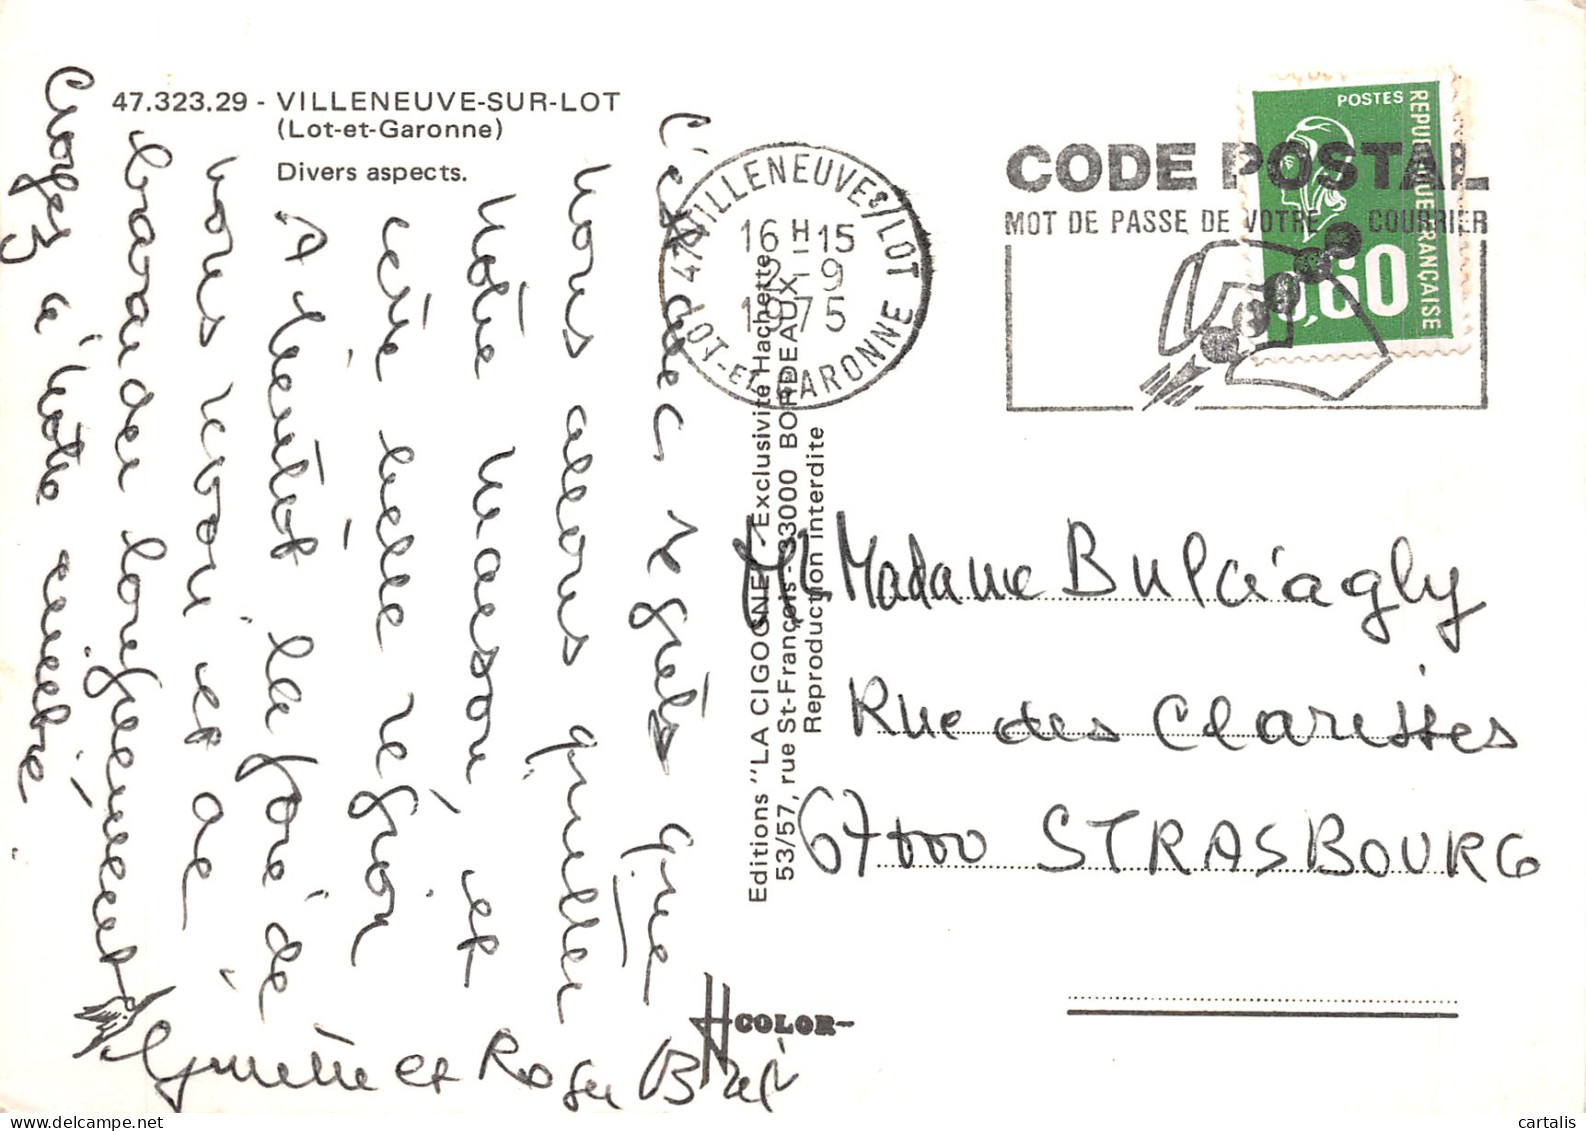 47.323.29 - VILLENEUVE-SUR-LOT
(Lot-et-Garonne)
Divers aspects.
C'est avec regrets que
nous allons quitter
Notre maison et
cette belle région
A bientôt la joie de
vous revoir et de
bavarder longuement
Croyez à notre amitié
Ginette et Roger
VILLENEUVE S/LOT
16 H 15
2 - 9
1975
47 LOT-ET-GARONNE
CODE POSTAL
MOT DE PASSE DE VOTRE COURRIER
POSTES
REPUBLIQUE FRANÇAISE
0,60
Editions "LA CIGOGNE" - Exclusivité Hachette
53/57, rue St-François - 33000 BORDEAUX
Reproduction interdite
Madame
Rue des Clarisses
67000 STRASBOURG
COLOR
cartalis